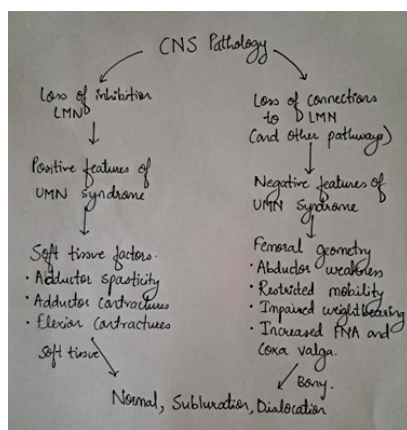 CNS Pathology
Loss of inhibition
LMN
Positive features of
UMN Syndrome
Soft tissue factors.
· Adductor spasticity
· Adductor contractures
· Flexion contractures
Soft tissue
Loss of connections
to LMN
(and other pathways)
Negative features of
UMN Syndrome
Femoral geometry
· Abductor weakness
· Restricted mobility
· Impaired weight bearing
· Increased FNA and
Coxa valga.
Bony.
Normal, Subluration, Dialocation